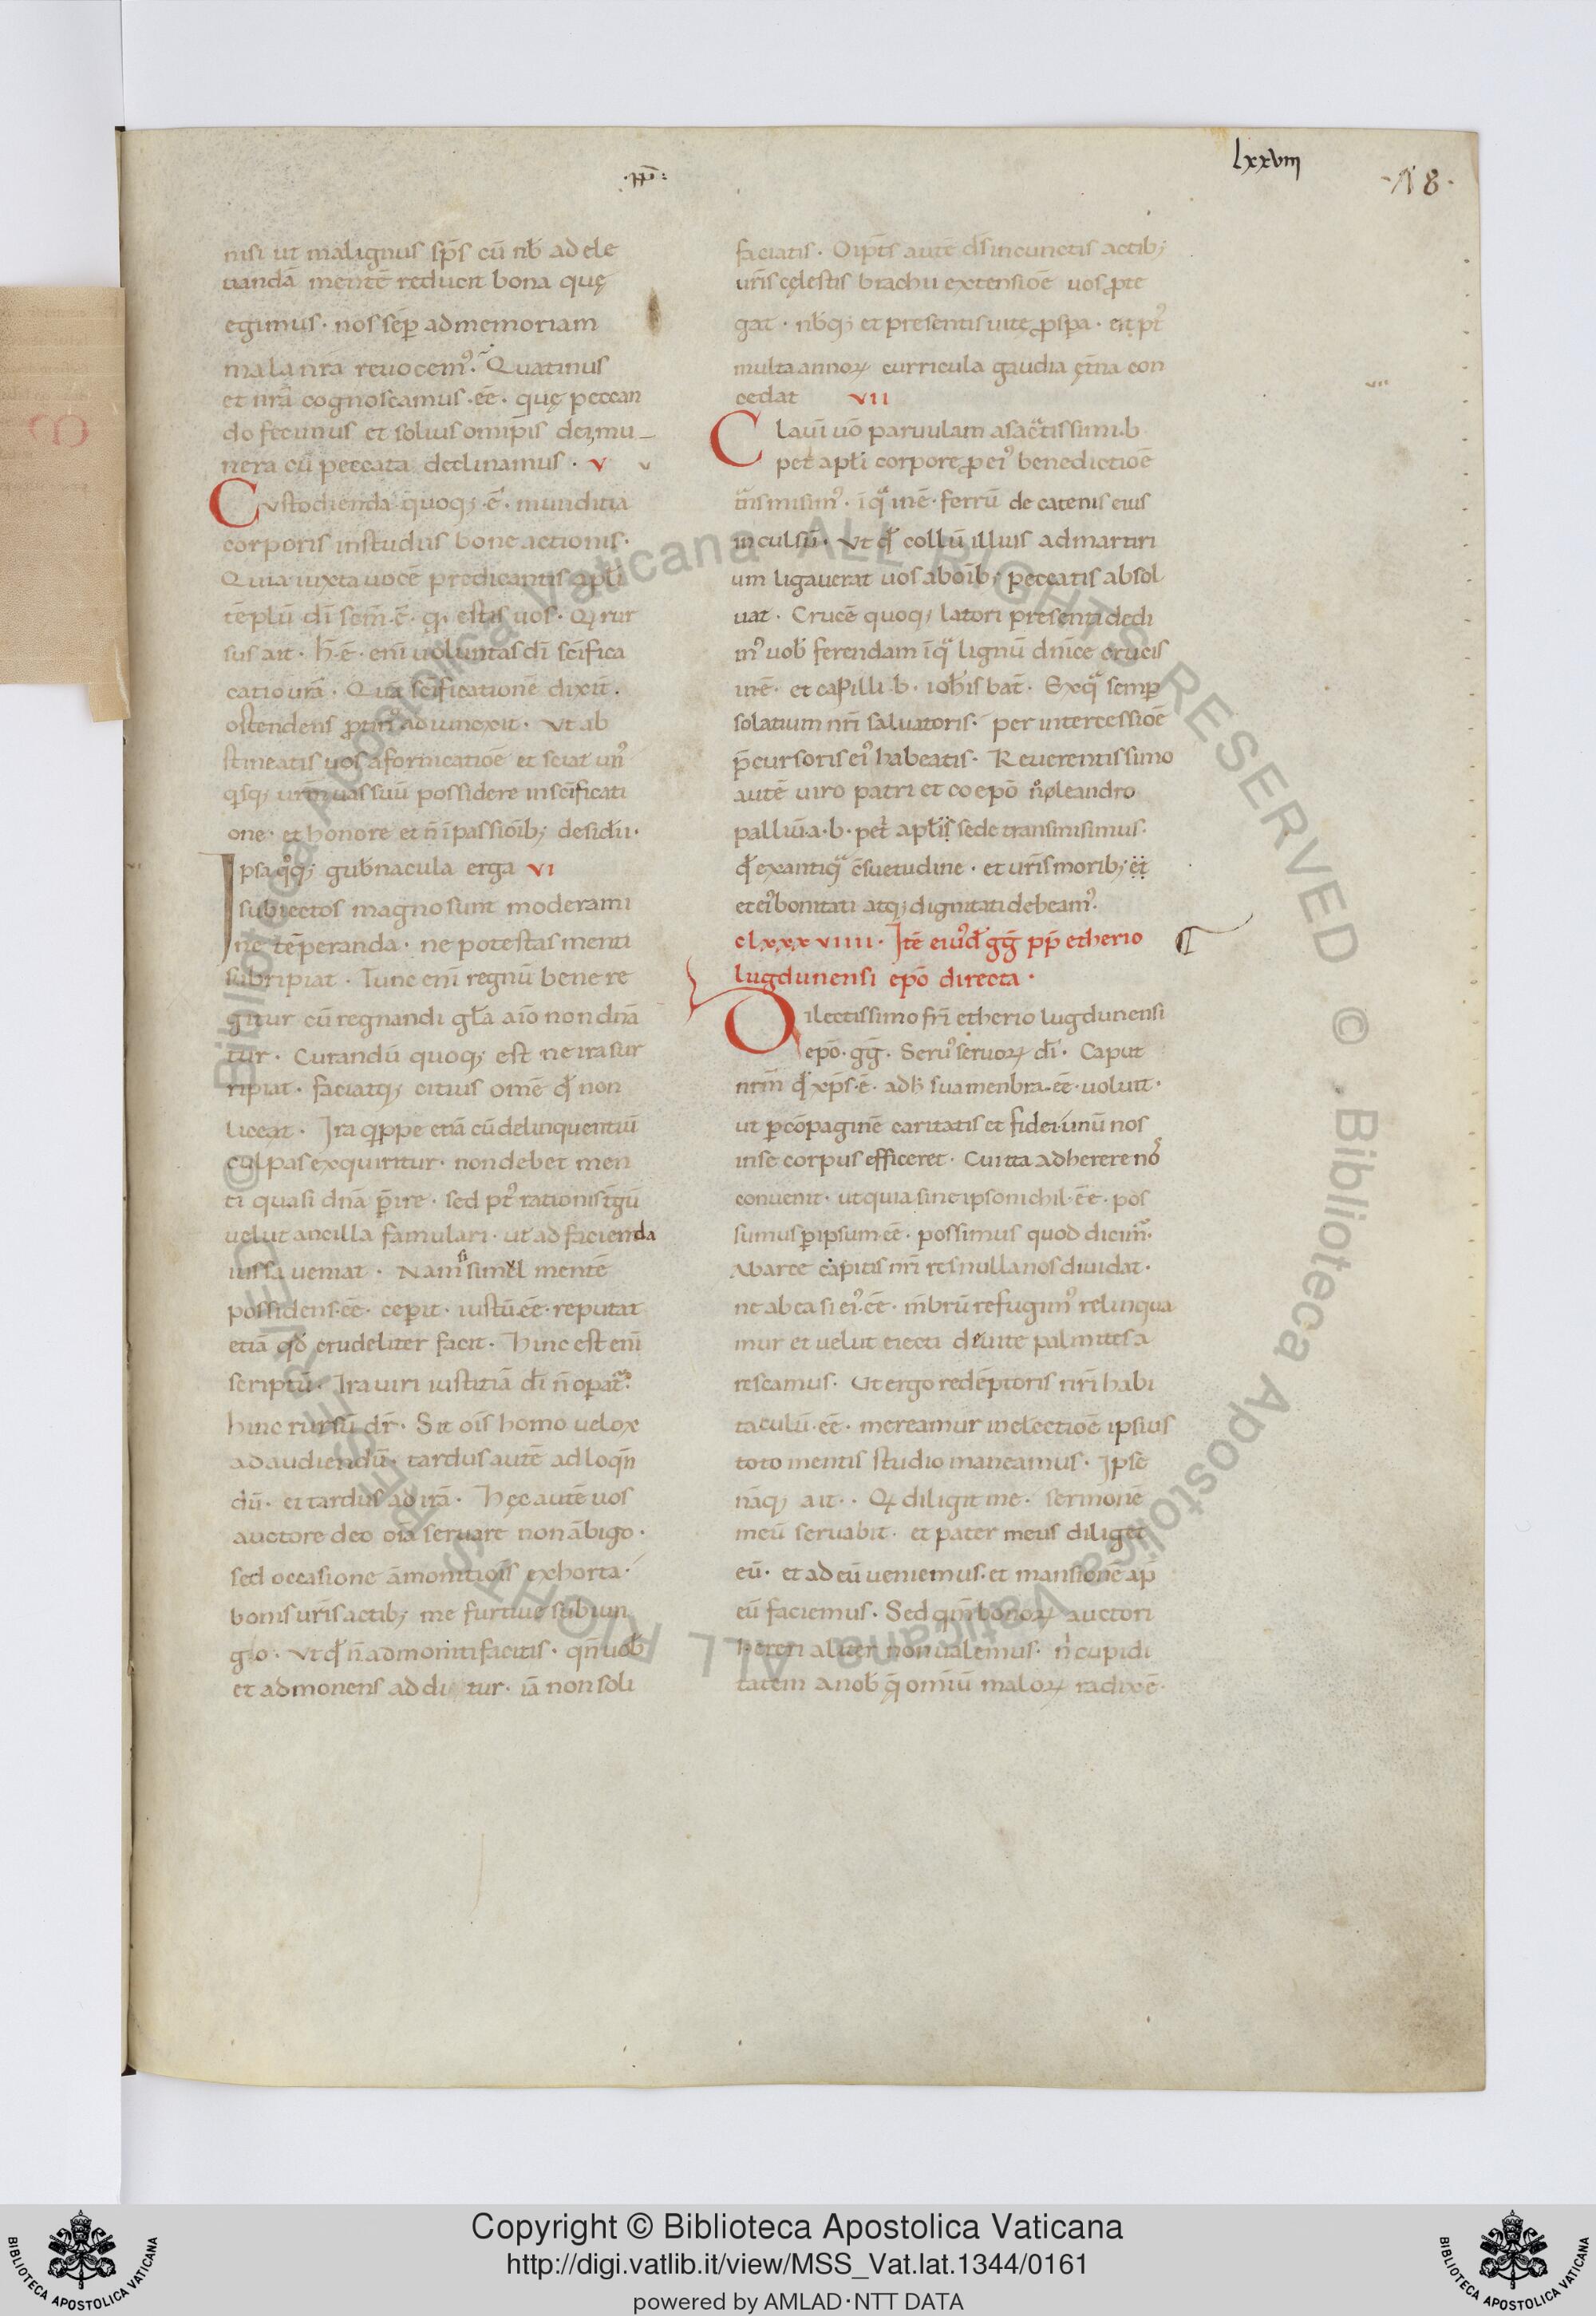 ·pp̄·
lxxviii
·78·
nisi ut malignus sp̄s cū nƀ ad ele
uandā mentē reducit bona quę
egimus · nos sep̄ ad memoriam
mala nrā reuocem᾿ · Quatinus
et nrā cognoscamus ·ēē· quę peccan
do fecimus et solius omip̄is dei mu
nera cū peccata declinamus · v v
Custodienda quoq; ·ē· munditia
corporis in studiis bone actionis ·
Quia iuxta uocē predicantis apłi
tēplū dī scm̄ ·ē· qđ estis uos · Qi rur
sus ait · h̄ ·ē· enī uoluntas dī scīfica
catio urā · Quā scīficationē dixit ·
ostendens ptin᾿ adiunexit · Vt ab
stineatis uos a fornicatiōē et sciat un᾿
qsq; urm̄ uas suū possidere in scīficati
one · et honore et n̄ ī passiōīb; desiđii ·
Ipsa qͦq; gubnacula erga vi
subiectos magno sunt moderami
ne tēperanda · ne potestas menti
subripiat · Tunc enī regnū bene re
gitur cū regnandi gła aīo non dnā
tur · Curandū quoq; est ne ira sur
ripiat · faciatq; citius omē qđ non
liceat · Ira qppe etiā cū delinquentiū
culpas exquiritur · non debet men
ti quasi dnā p̄ire · sed p᾿t rationis tgū
uelut ancilla famulari · ut ad facienda
iussa ueniat · Nam si simel mentē
possidens ·ēē· cep̄it · iustū ·ēē· reputat
etiā qđ crudeliter facit · Hinc est enī
scriptū · Ira uiri iustitiā dī n̄ opat᾿ ·
hinc rursū dr̄ · Sit oīs homo uelox
ad audiendū · tardus autē ad loqn̄
dū · et tardus ad irā · Hęc autē uos
auctore deo oīa seruare non ābigo ·
sed occasione āmonitiōīs exhorta ·
bonis uris̄ actib; me furtiue subiun
go · Vt qđ n̄ admoniti facitis · qn̄ uoƀ
et admonens additur · iā non soli
faciatis · Oip̄ts autē dš in cunctis actib;
uris̄ cęlestis brachii extensiōē uos pte
gat · nƀq; et presentis uitę pspa · et p᾿t
multa annoꝝ curricula gaudia ętna con
cedat vii
Clauī uō paruulam a sacͣtissim. b
pet apłi corpore p ei᾿ benedictiōē
tͣnsmisim᾿ · ī qͣ inē · ferrū de catenis eius
inculsū · Vt qđ collū illius ad martiri
um ligauerat uos ab oīb; peccatis absol
uat · Crucē quoq; latori presenti dedi
m᾿ uoƀ ferendam ī qͣ lignū dnīce crucis
inē · et capilli ·b· ioħis bat̄ · Ex qͣ semp
solatium nrī saluatoris · per intercessiōē
p̄cursoris ei᾿ habeatis · Reuerentissimo
autē uiro patri et coepō nͦo leandro
palliū · a · b · pet apłi sede transmisimus ·
qđ ex antiqͣ c̄suetudine · et uris̄ morib; et
et ei᾿ bonitati atq; dignitati debeam᾿ ·
clxxxviiii · Itē eiusđ gḡ pp̄ etherio
lugdunensi epō directa ·
Dilectissimo frī etherio lugdunensi
epō · gḡ · Seru᾿ seruoꝝ dī · Caput
nrm̄ qđ xp̄s ·ē· adħ sua menbra ·ēē· uoluit ·
ut p cōpaginē caritatis et fidei unū nos
in se corpus efficeret · Cui ita adherere nos
conuenit · ut quia sine ipso nichil ·ēē· pos
sumus p ipsum ·ēē· possimus quod dicim᾿ ·
Ab arce capitis nrī res nulla nos diuidat ·
ne ab ea si ei᾿ ·ēē· m̄brū refugim᾿ relinqua
mur et uelut eiecti de uite palmites a
rescamus · Ut ergo redēptoris nrī habi
taculū ·ēē· mereamur in electiōē ipsius
toto mentis studio maneamus · Ipse
nāq; ait · · Qi diligit me · sermonē
meū seruabit · et pater meus diliget
eū · et ad eū ueniemus · et mansionē ap̄
eū faciemus · Sed qm̄ bonoꝝ auctori
hereri aliter non ualemus · n̄ cupidi
tatem a noƀ q̄ omiū maloꝝ radix ē ·
vii
Copyright © Biblioteca Apostolica Vaticana
http://digi.vatlib.it/view/MSS_Vat.lat.1344/0161
powered by AMLAD·NTT DATA
BIBLIOTECA APOSTOLICA VATICANA
BIBLIOTECA APOSTOLICA VATICANA
© Biblioteca Apostolica Vaticana ALL RIGHTS RESERVED © Biblioteca Apostolica Vaticana ALL RIGHTS RESERVED